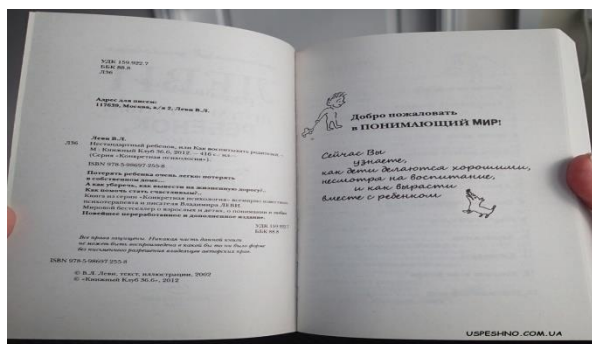 УДК 159.922.7
ББК 88.8
Л36
Адрес для писем:
117639, Москва, а/я 2, Леви В.Л.
Леви В.Л.
Л36 Нестандартный ребенок, или Как воспитывать родителей.
М.: Книжный Клуб 36.6, 2012. — 416 с.: ил.
(Серия «Конкретная психология»).
ISBN 978-5-98697-255-8
Потерять ребенка очень легко: потерять
в собственном доме...
А как уберечь, как вывести на жизненную дорогу?..
Как помочь стать счастливым?..
Книга из серии «Конкретная психология» всемирно известного
психотерапевта и писателя Владимира ЛЕВИ.
Мировой бестселлер о взрослых и детях, о понимании и любви.
Новейшее переработанное и дополненное издание.
УДК 159.922.7
ББК 88.8
Все права защищены. Никакая часть данной книги
не может быть воспроизведена в какой бы то ни было форме
без письменного разрешения владельцев авторских прав.
ISBN 978-5-98697-255-8
© В.Л. Леви, текст, иллюстрации, 2007
© «Книжный Клуб 36.6», 2012
Добро пожаловать
в ПОНИМАЮЩИЙ МИР!
Сейчас Вы
узнаете,
как дети делаются хорошими,
несмотря на воспитание,
и как вырасти
вместе с ребенком
USPESHNO.COM.UA